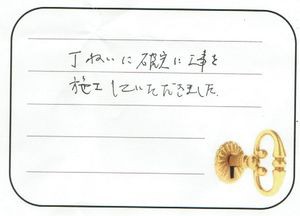 丁ねいに確実に工事を
施工していただきました。